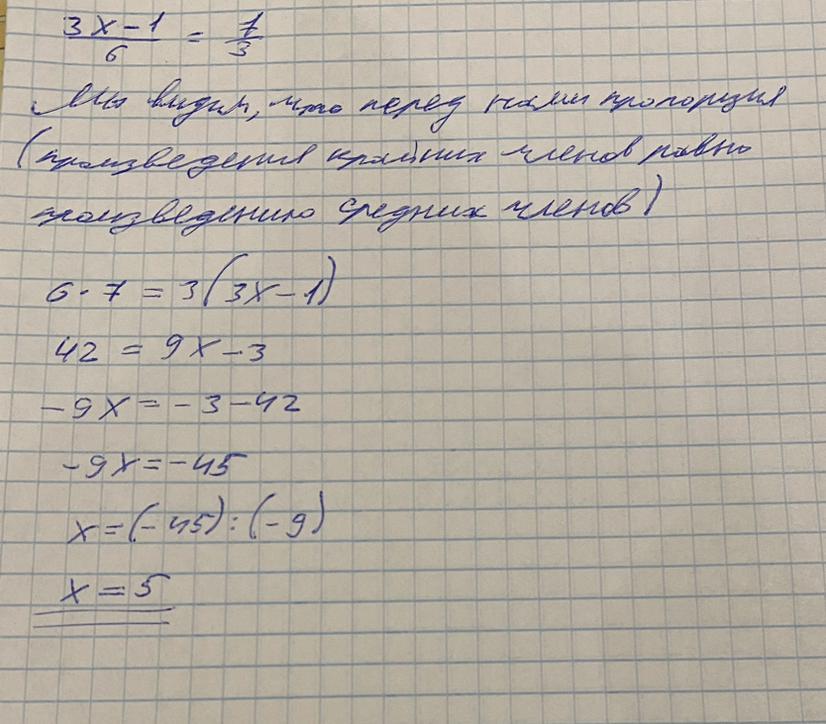 3x-1/6 = 7/3
Мы видим, что перед нами пропорция
(произведения крайних членов равно
произведению средних членов)
6·7 = 3(3x-1)
42 = 9x-3
-9x=-3-42
-9x=-45
x=(-45):(-9)
x=5